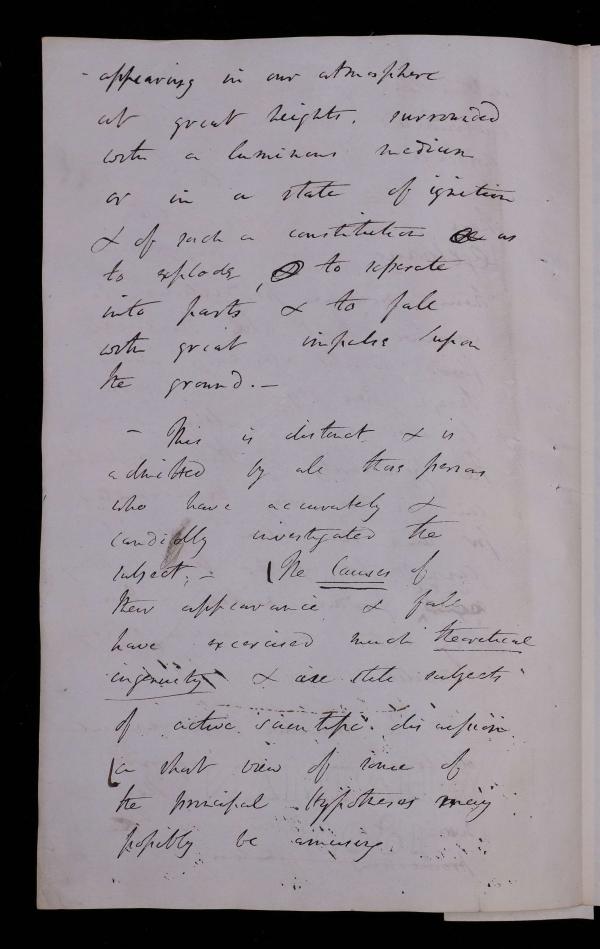 - appearing in our atmosphere
at great heights, surrounded
with a luminous medium
or in a state of ignition
& of such a constitution as
to explode, to seperate
into parts & to fall
with great impulse upon
the ground. —
— This is distinct & is
admitted by all those persons
who have accurately &
candidly investigated the
subject; — The Causes of
their appearance & fall
have excercised much theoretical
ingenuity & are still subjects
of active scientific discussion
a short view of some of
the principal Hypotheses may
possibly be amusing.